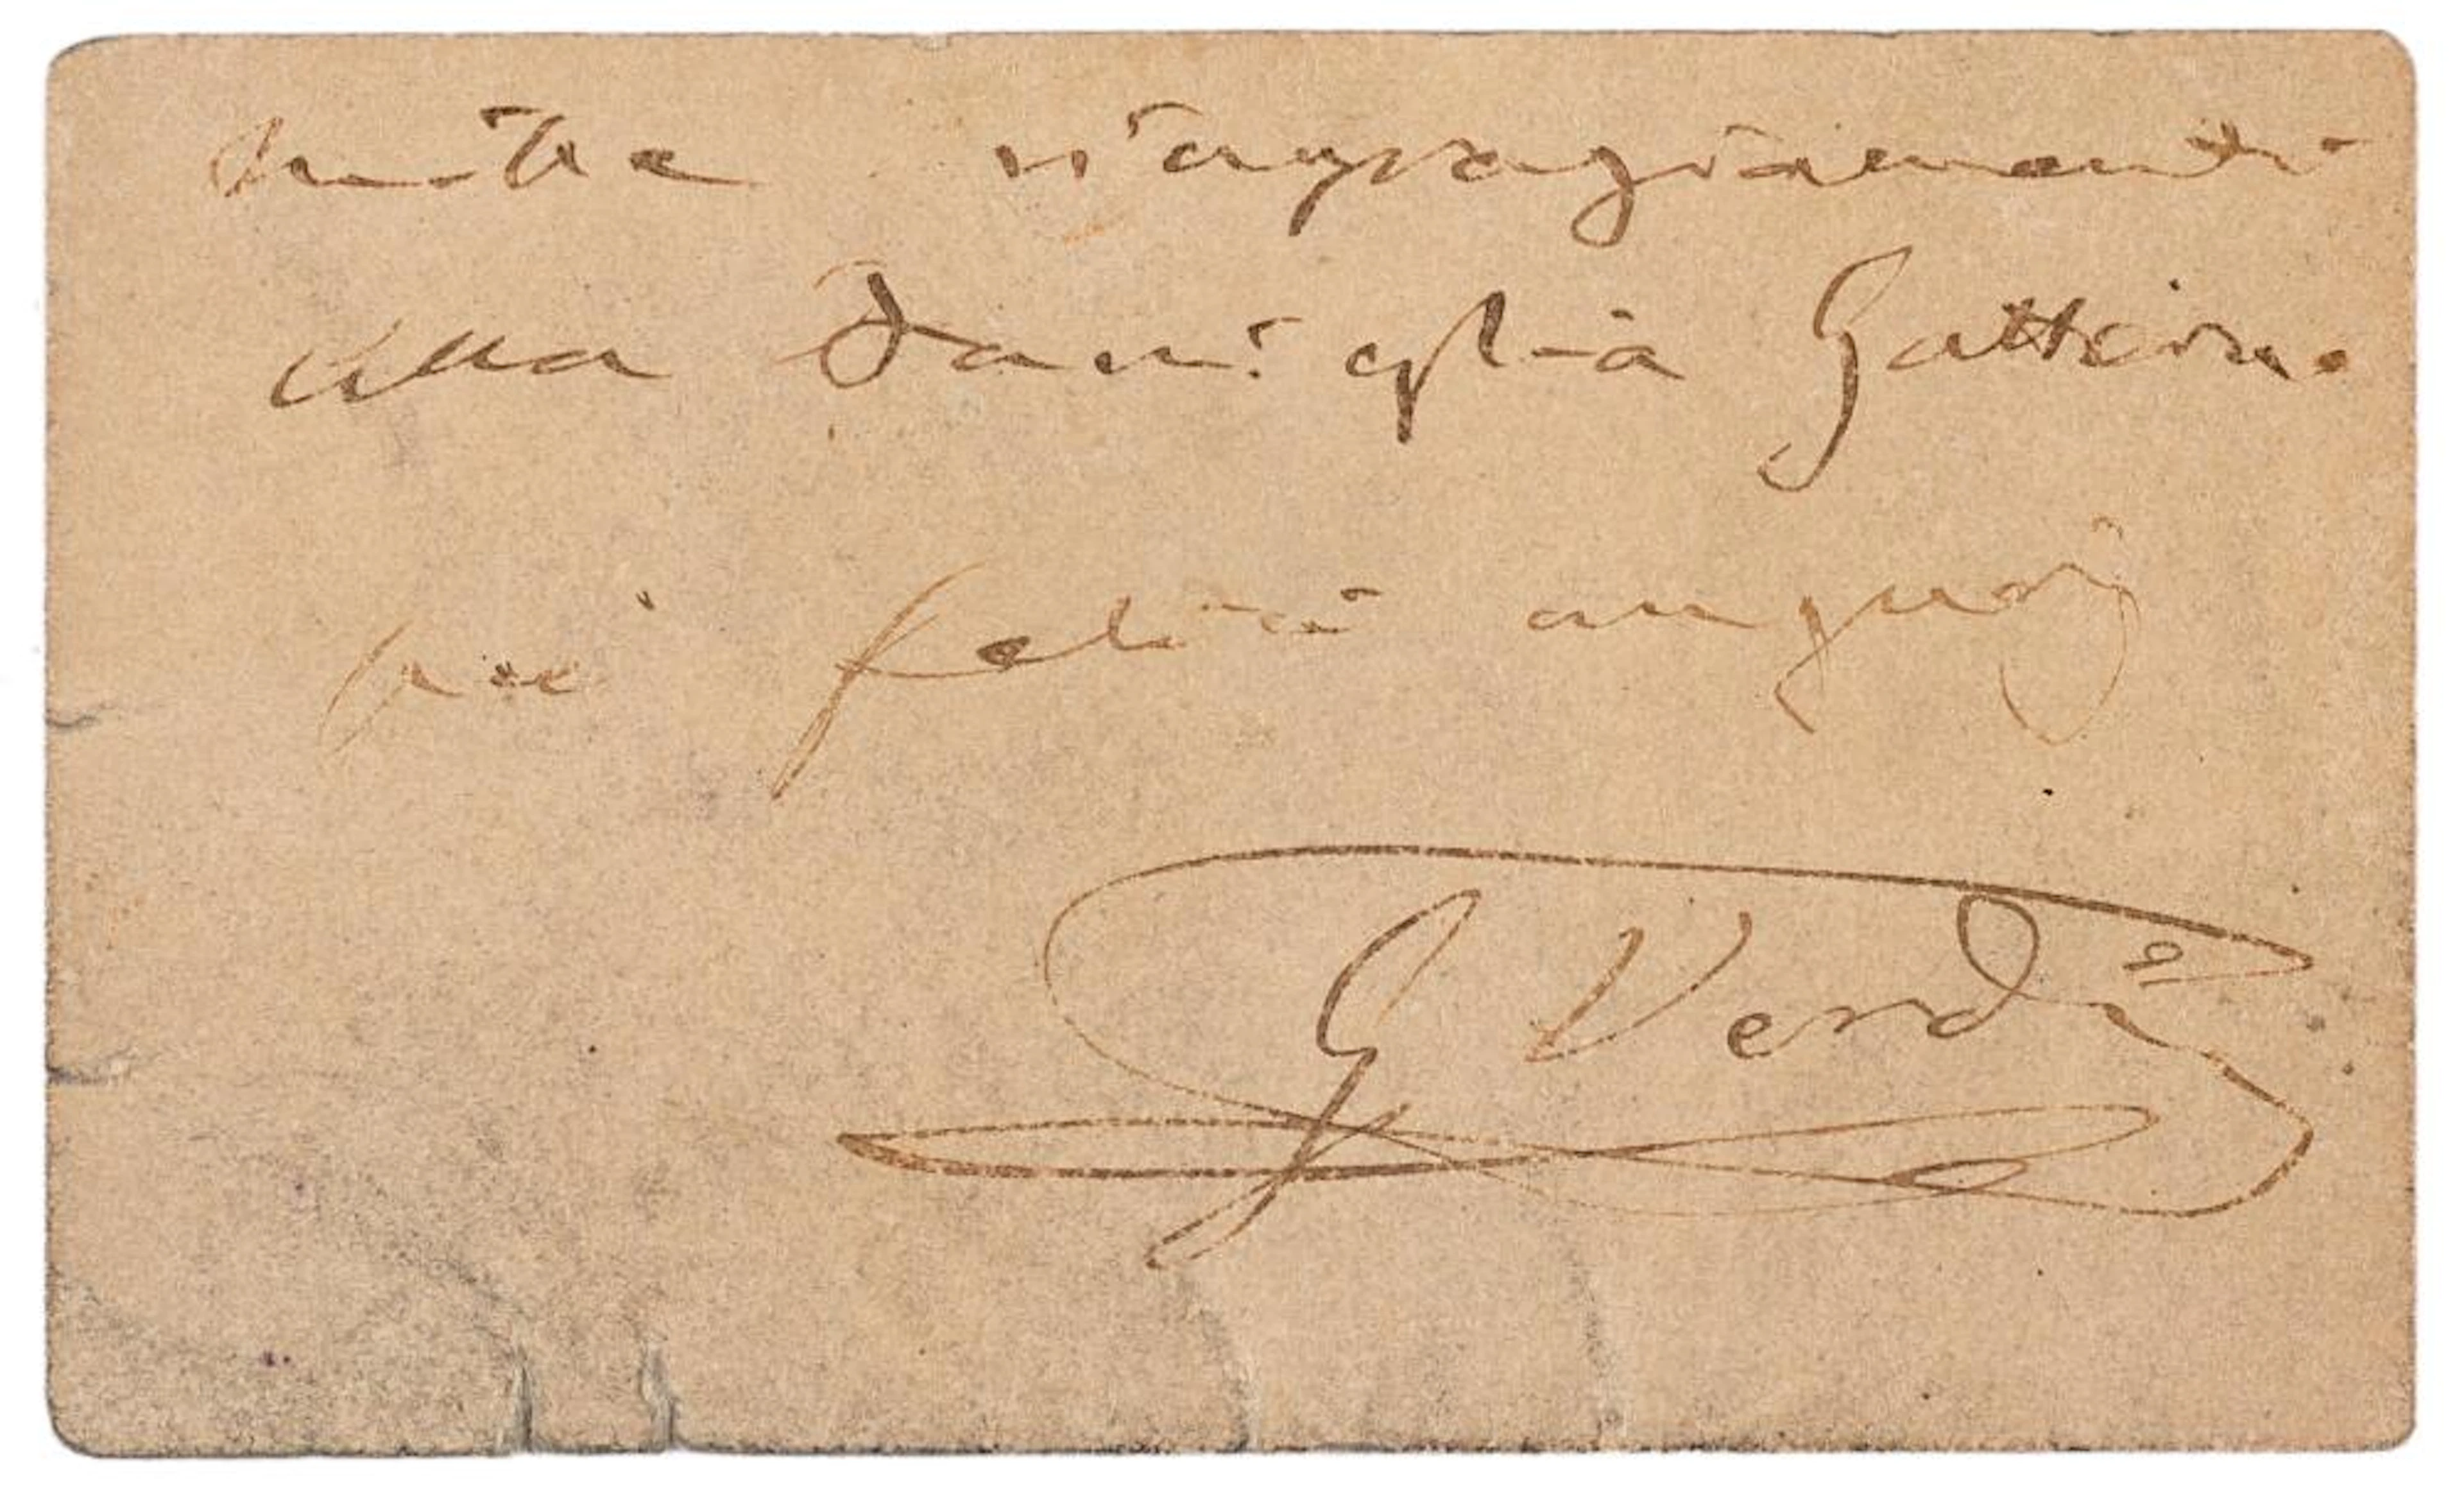 mille ringraziamenti
alla Famiglia Gatterin.
pei felici augurj
G Verdi